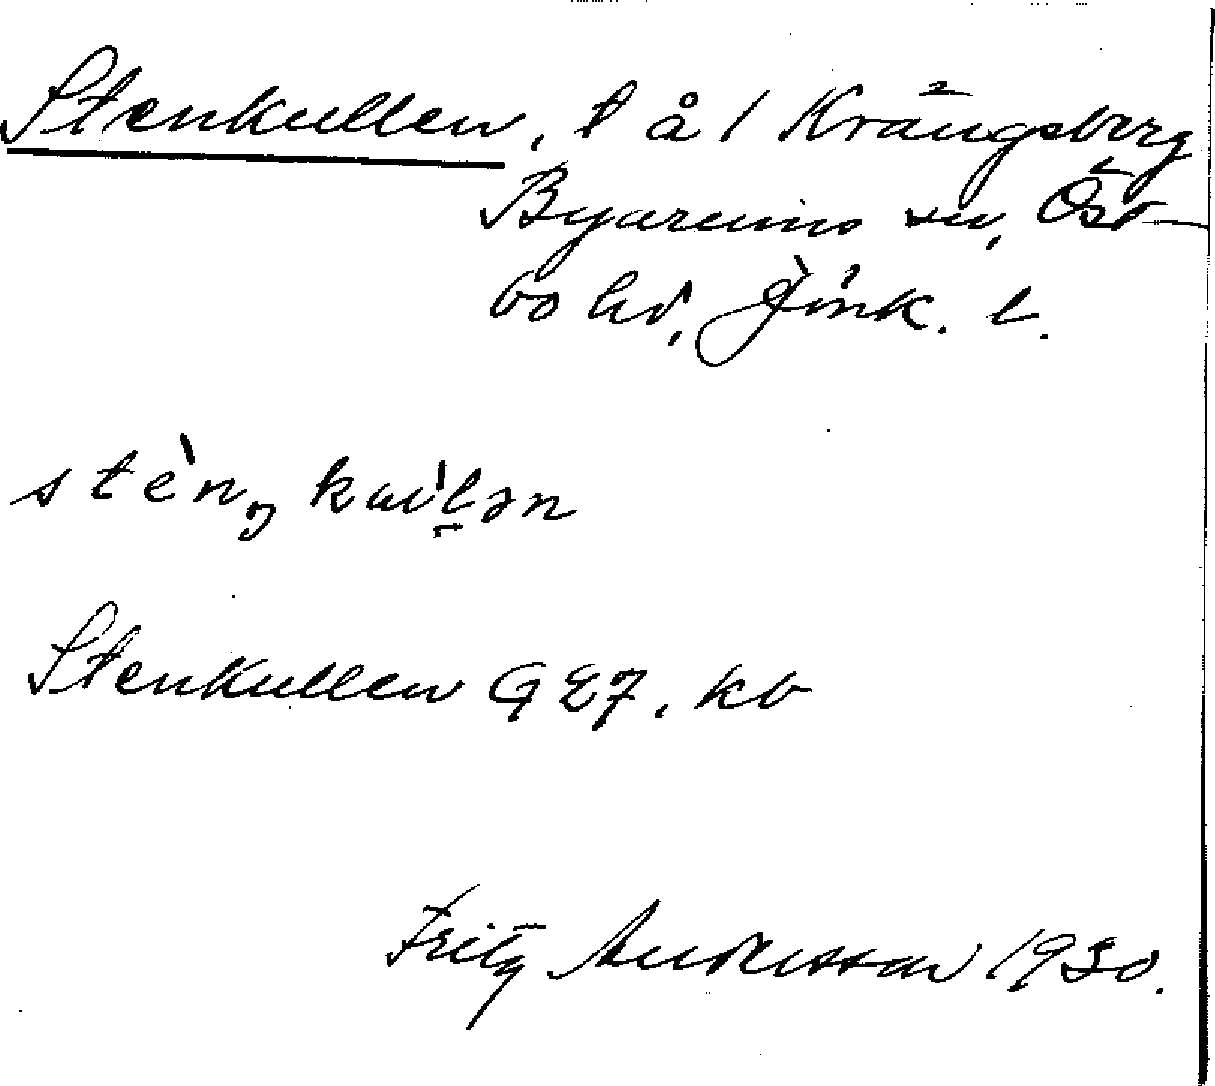 Stenkullen, t å 1 Krängsberg
Byarums sn, Öst-
bo hd, Jönk. l.
stèn, kul̠ən
Stenkullen GEF. kb
Fritz Andersson 1930.